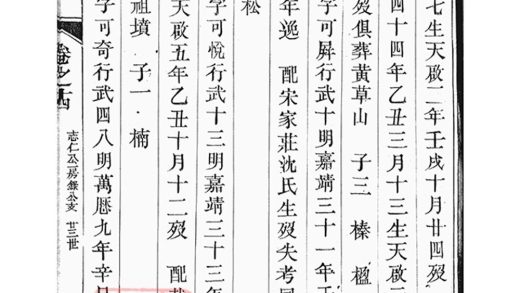 七生天啟二年壬戌十月廿四歿
四十四年乙丑三月十三生天啟二
歿俱葬黄草山 子三 榛 楹
字可屏行武十明嘉靖三十一年
年逸 配宋家莊沈氏生歿失考
松
字可悅行武十三明嘉靖三十三年
天啟五年乙丑十月十二歿 配
祖墳 子一·楠
字可奇行武四八明萬曆九年辛
卷之十四
志仁公房錄公亥 廿三世